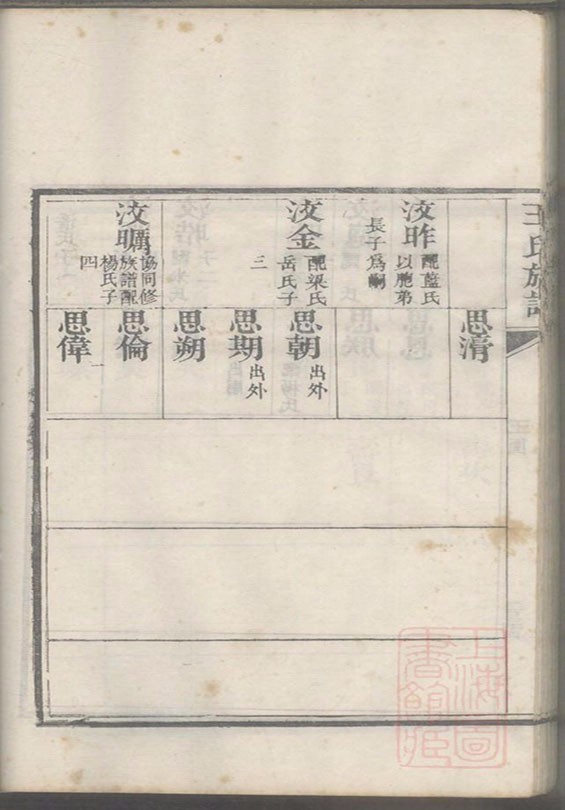 王氏族譜
思清
汶昨 配藍氏
以胞弟
長子爲嗣
汶金 配梁氏
岳氏子
三
思朝 出外
思期 出外
思朔
汶曯 協同修
族譜配
楊氏子
四
思倫
思偉
上海圖
書館藏